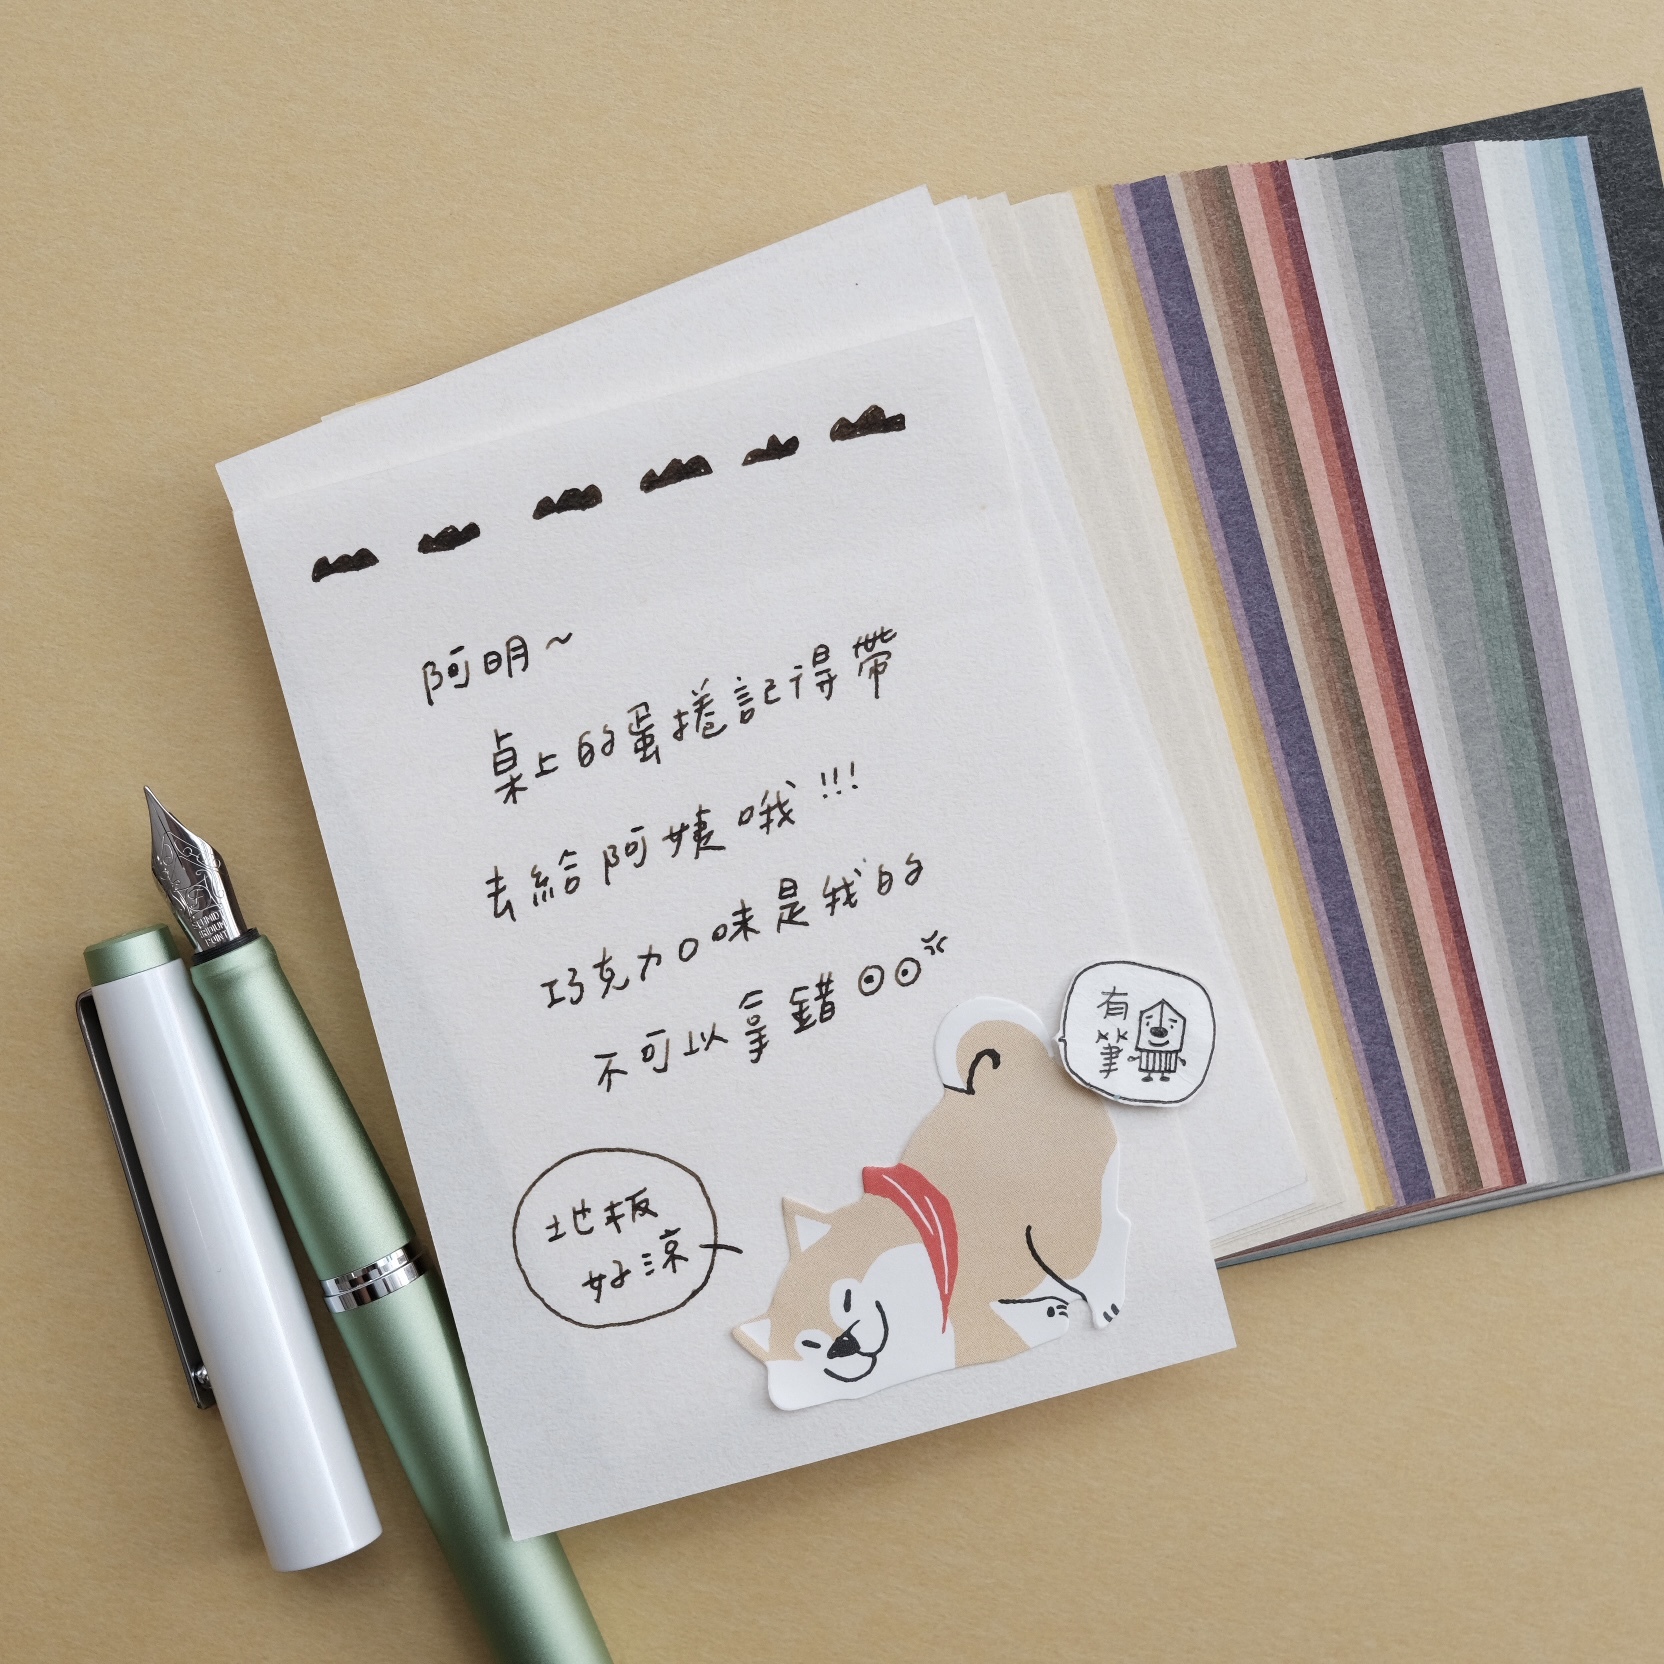 阿明～
桌上的蛋捲記得帶
去給阿姨哦!!!
巧克力口味是我的
不可以拿錯
地板
好涼
有
筆
SCHMIDT
IRIDIUM
POINT